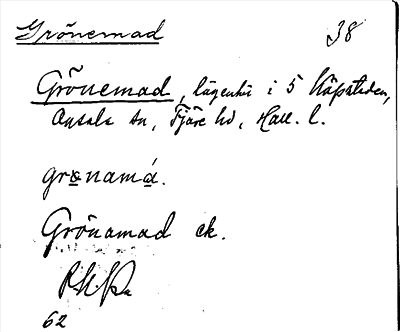 Grönemad 38
Grönemad, lägenh. i 5 Köpstaden,
Onsala sn, Fjäre hd, Hall. l.
grønamá.
Grönamad ek.
62